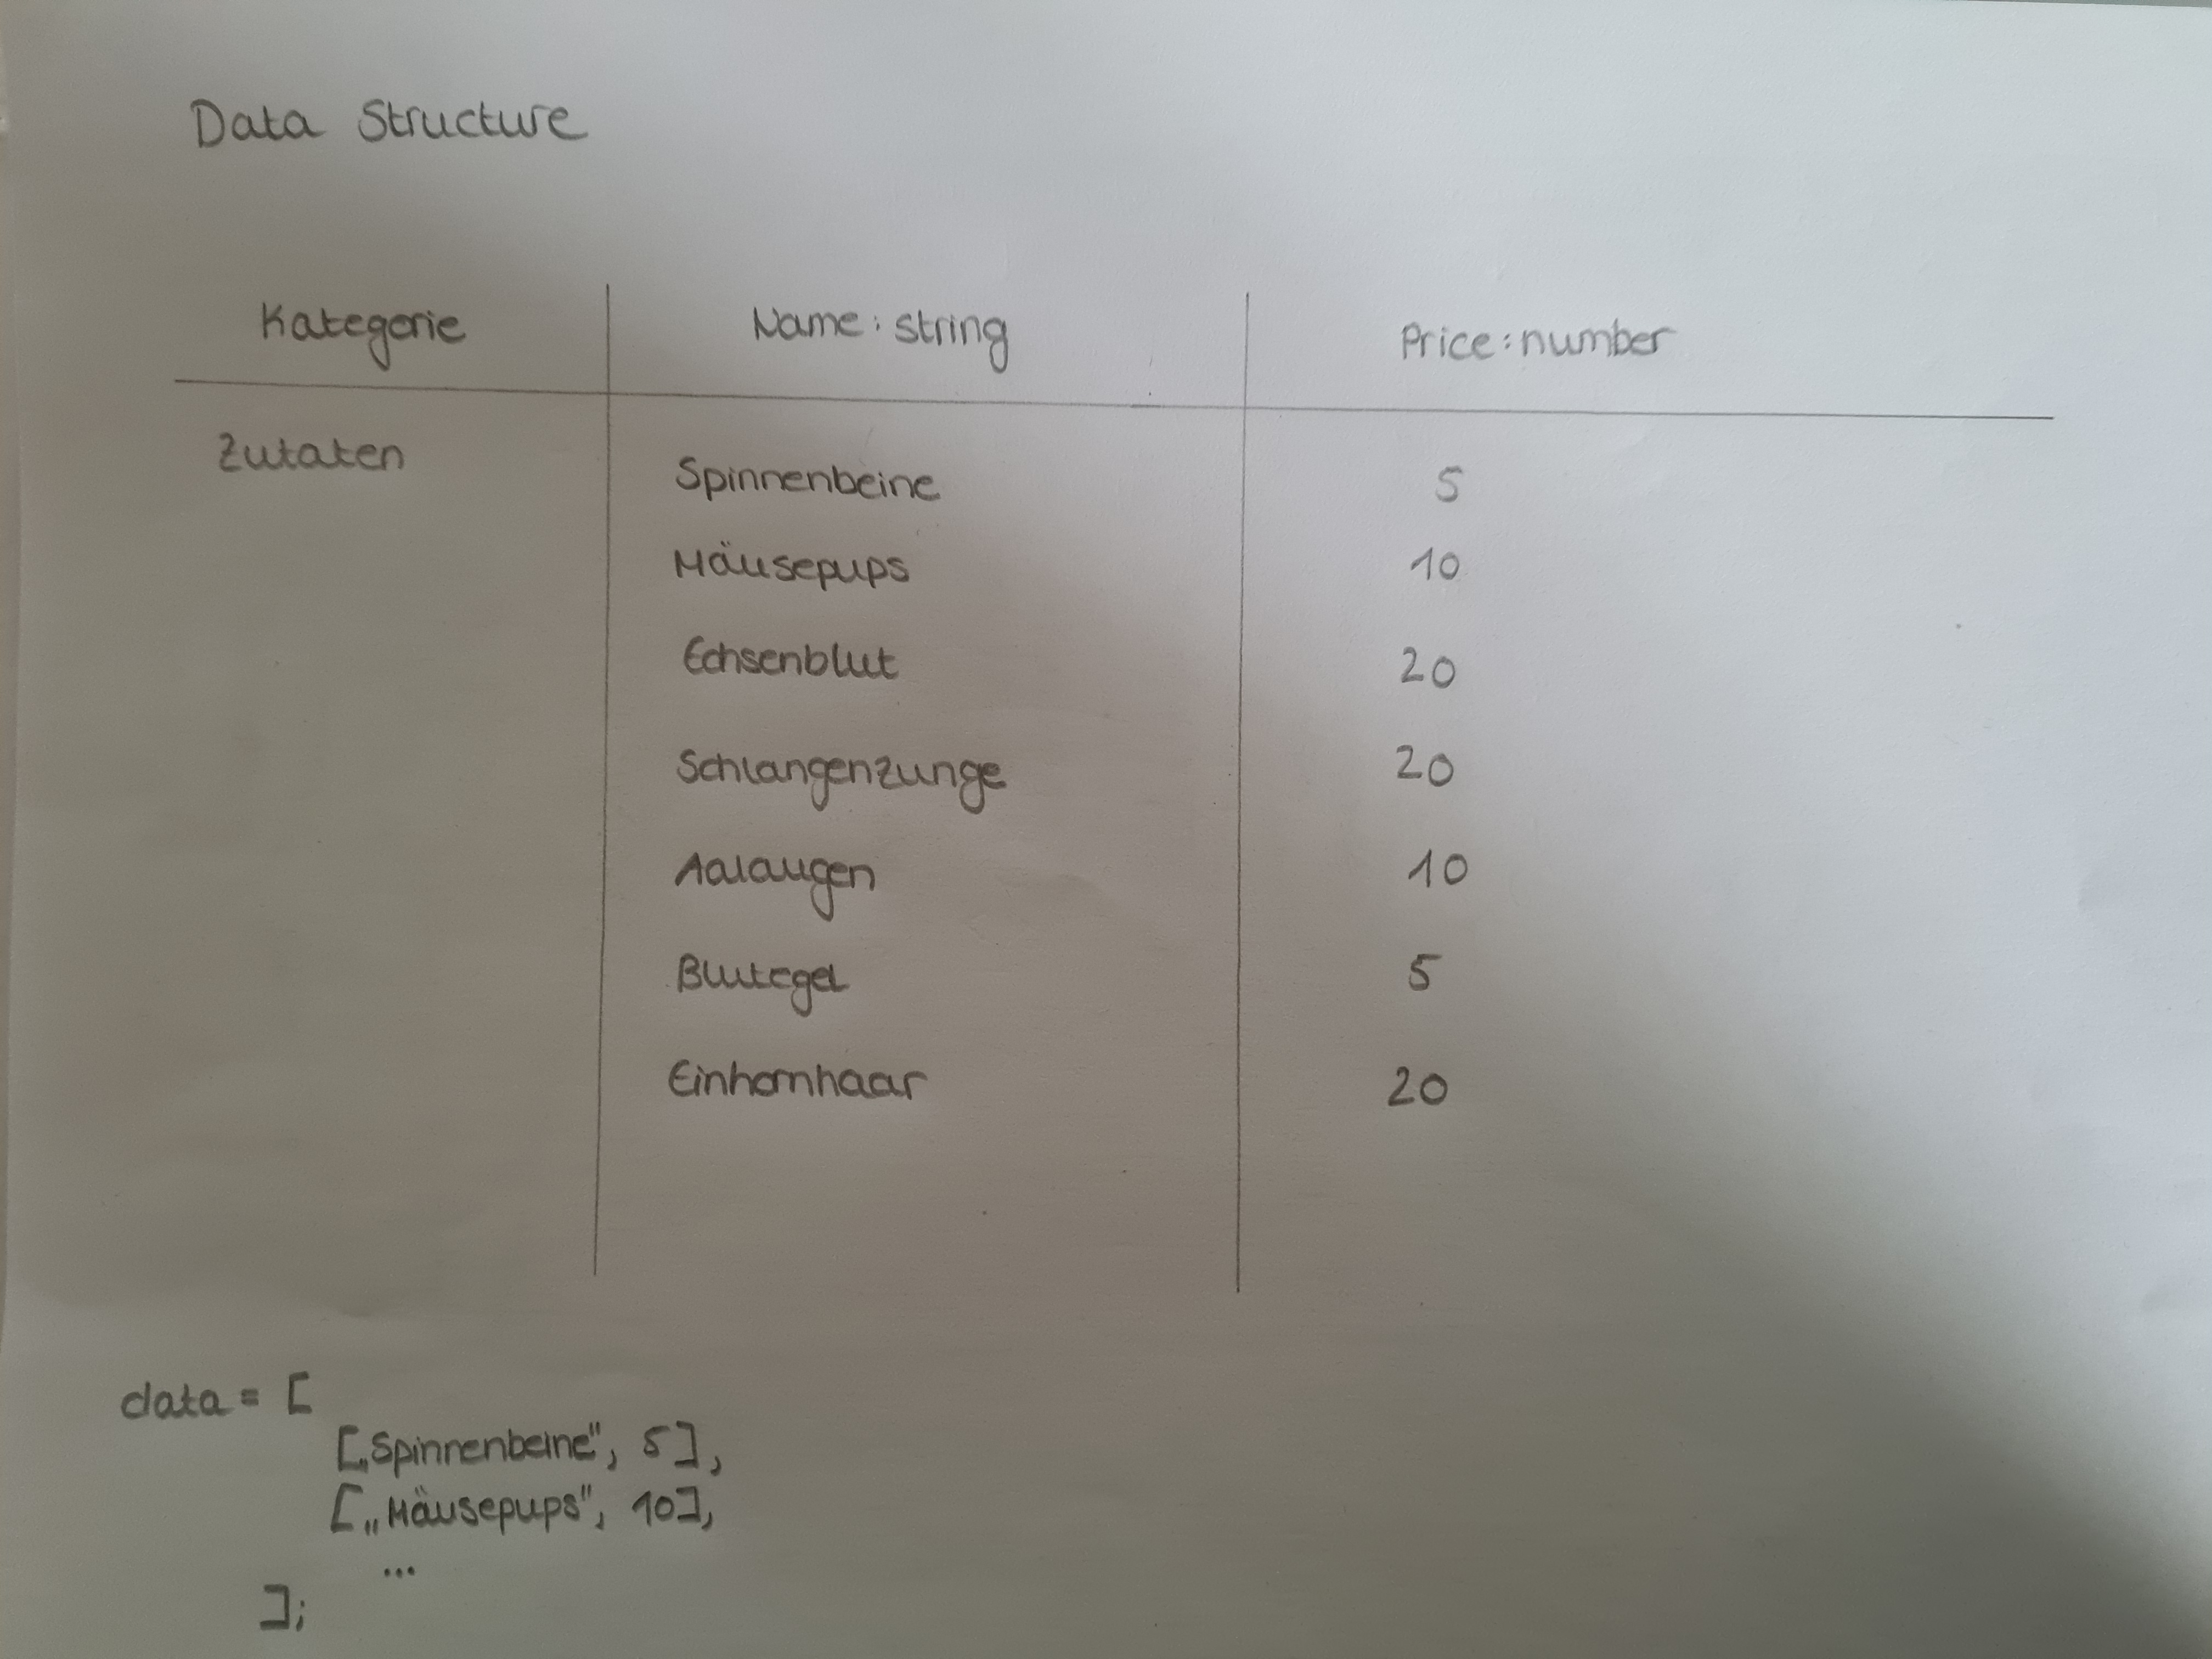 Data Structure
Kategorie Name: string Price: number
Zutaten Spinnenbeine 5
Mäusepups 10
Echsenblut 20
Schlangenzunge 20
Aalaugen 10
Blutegel 5
Einhornhaar 20
data = [
[„Spinnenbeine", 5],
[„Mäusepups", 10],
...
];